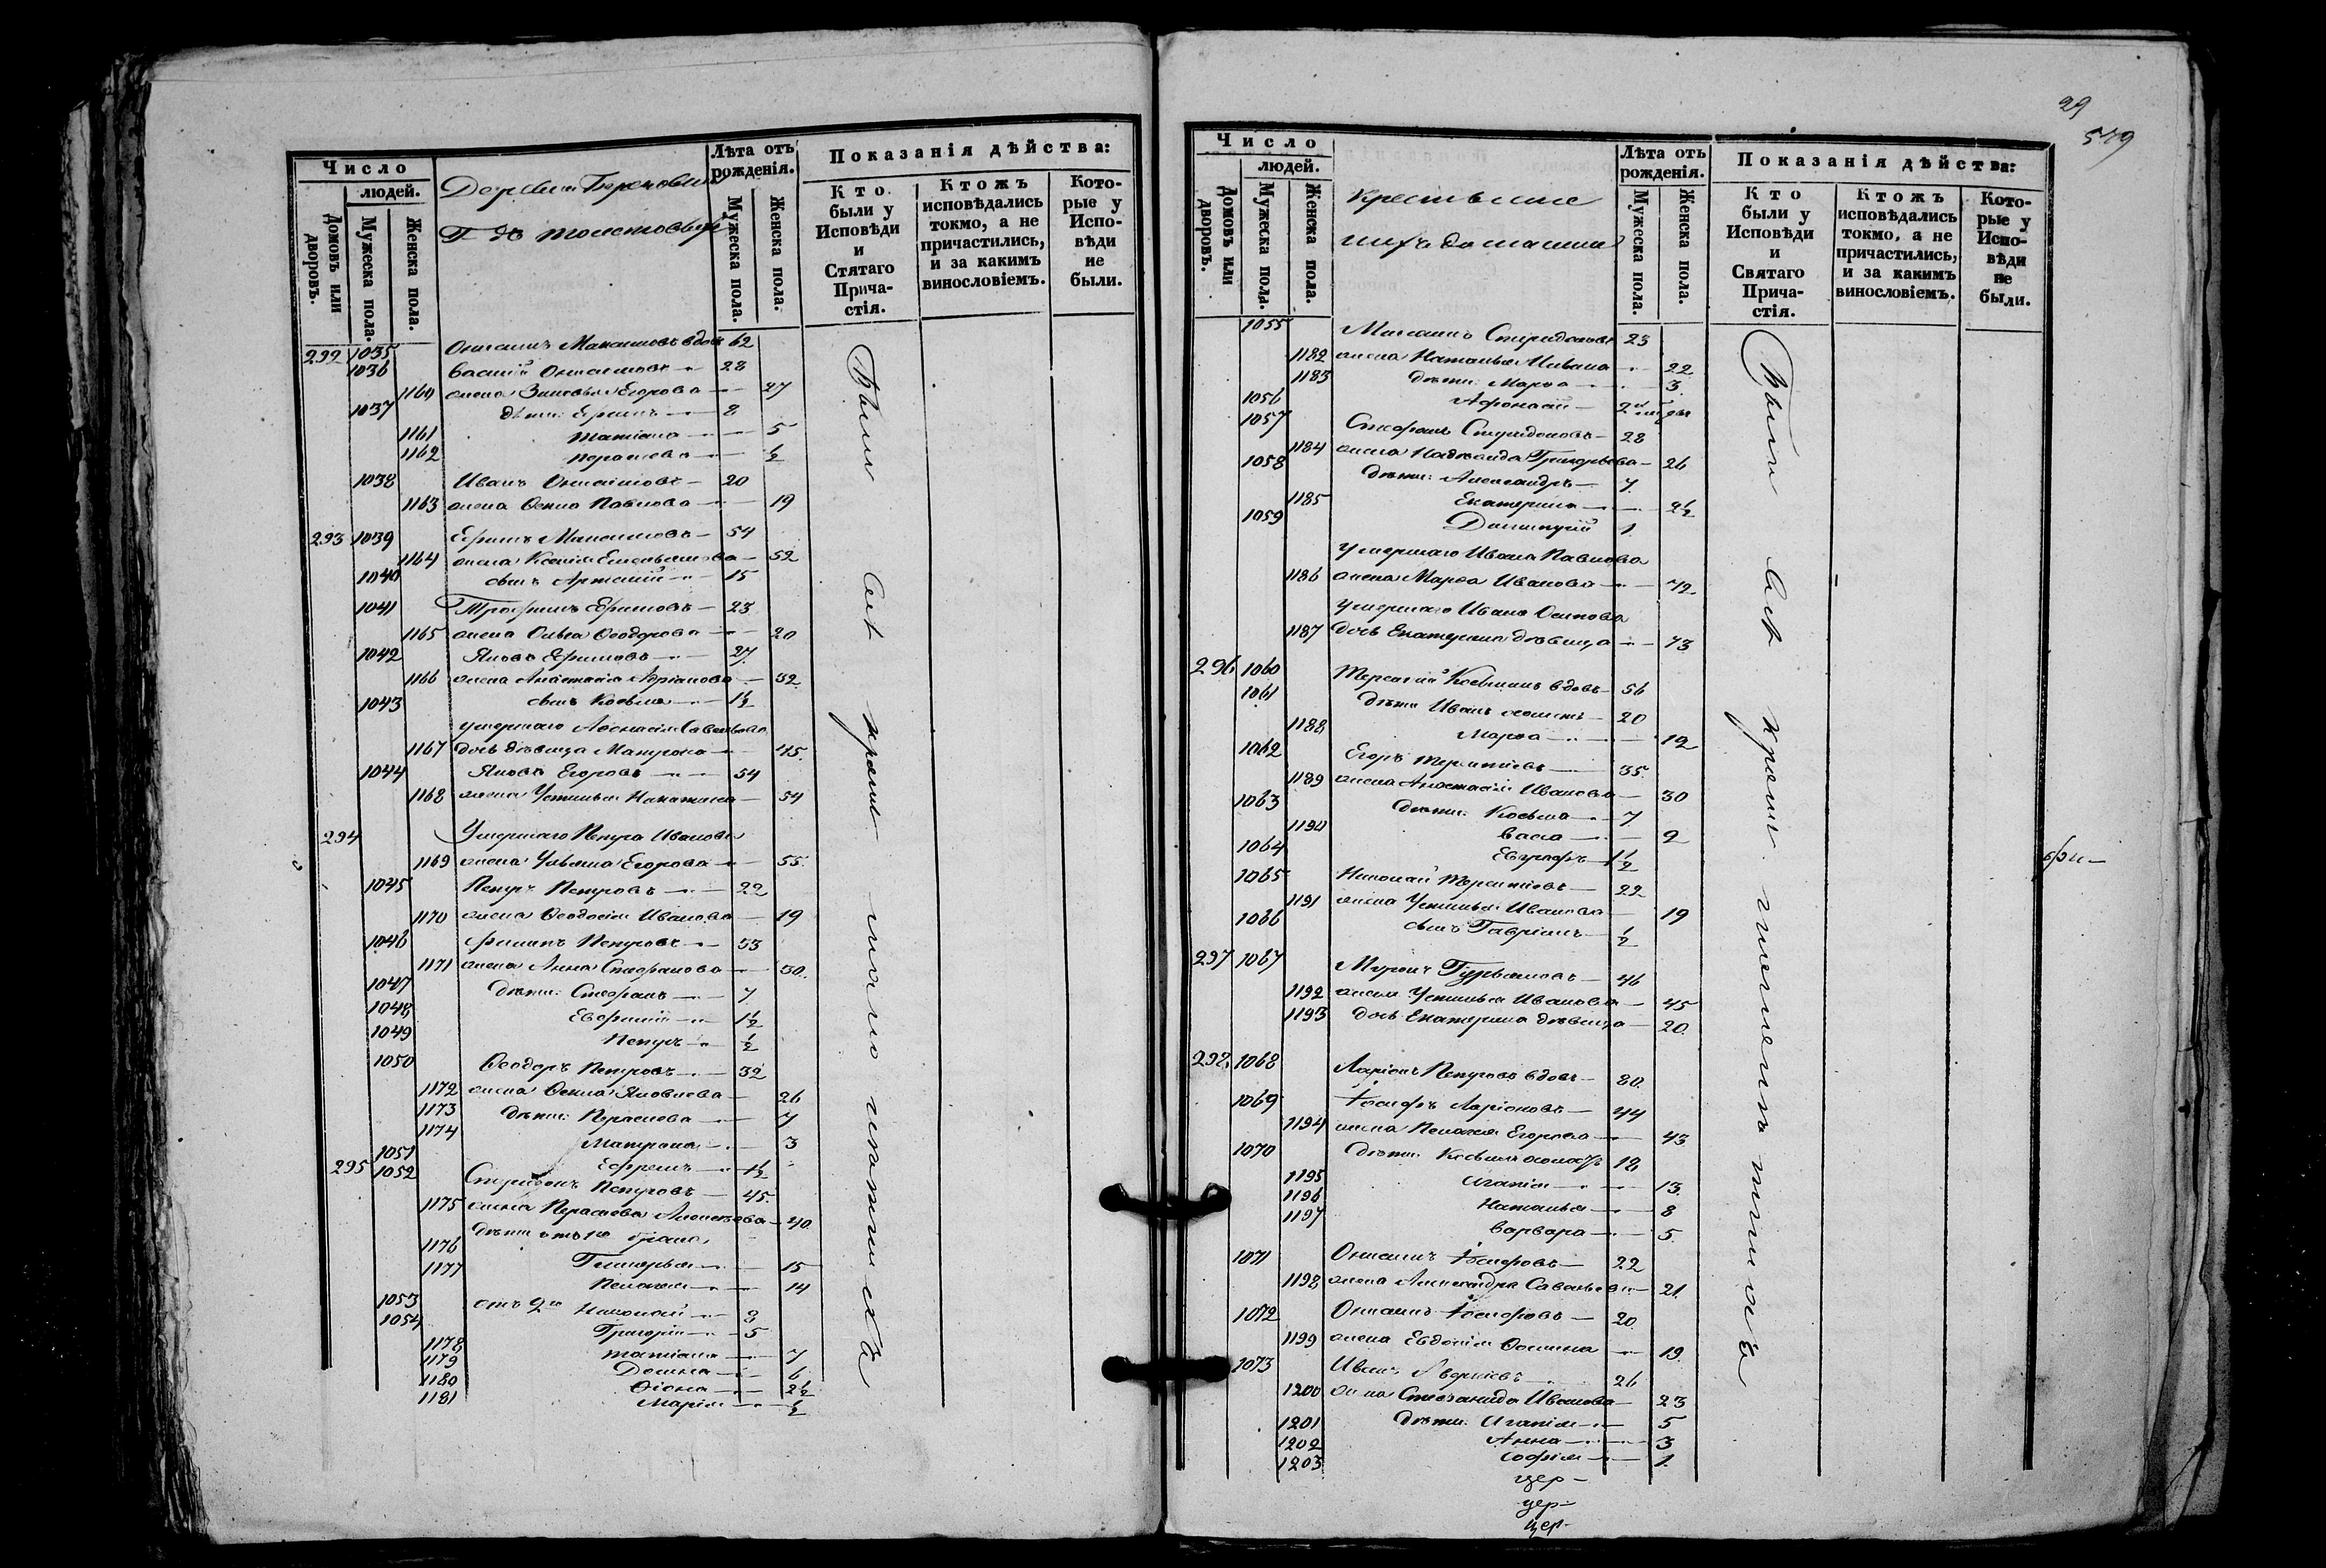 Число
людей.
Домовъ или дворовъ.
Мужеска пола.
Женска пола.
Деревни
Лѣта отъ рожденія.
Мужеска пола.
Женска пола.
Показанія дѣйства:
Кто были у Исповѣди и Стятаго Прича-стія.
Ктожъ исповѣдались токмо, а не причастились, и за какимъ винословіемъ.
Кото-рые у Испо-вѣди не были.
292 1035 Онисимъ Максимовъ вдовъ 62
1036 Василій Онисимовъ 28
1160 жена Зиновья Егорова 27
1037 дѣти: Ефимъ 8
1161 Татіана 5
1162 Параскева ½
1038 Иванъ Онисимовъ 20
1163 жена Ѳекла Павлова 19
293 1039 Ефимъ Максимовъ 54
1164 жена Ксенія Емельянова 52
1040 сынъ Артемій 15
1041 Трофимъ Ефимовъ 23
1165 жена Ольга Ѳеодорова 20
1042 Яковъ Ефимовъ 27
1166 жена Анастасія 32
1043 сынъ Косьма 1½
умершаго Аѳонасія Савельева
1167 дочь дѣвица Матрона 45
1044 Яковъ Егоровъ 54
1168 жена Устинья 54
294 Умершаго Петра Иванова
1169 жена Ульяна Егорова 55
1045 Петръ Петровъ 22
1170 жена Ѳеодосія Иванова 19
1046 Филипъ Петровъ 33
1171 жена Анна Стефанова 30
1047 дѣти: Стефанъ 7
1048 Евфимій 1½
1049 Петръ ½
1050 Ѳеодоръ Петровъ 32
1172 жена Ѳекла Яковлева 26
1173 дѣти: Параскева 7
1174 Матрона 3
1051 Ефремъ 1½
295 1052 Спиридонъ Петровъ 45
1175 жена Параскева Алексѣева 40
дѣти отъ 1го брака
1176 Гликерья 15
1177 Пелагея 14
1053 отъ 2го Николай 8
1054 Григорій 5
1178 Татіана 7
1179 Домна 6
1180 Ѳіона 2½
1181 Марія ½
Были вся кромѣ
29
579
Число
людей.
Домовъ или дворовъ.
Мужеска пола.
Женска пола.
крестьяне
ихъ домашніе
Лѣта отъ рожденія.
Мужеска пола.
Женска пола.
Показанія дѣйства:
Кто были у Исповѣди и Святаго Прича-стія.
Ктожъ исповѣдались токмо, а не причастились, и за какимъ винословіемъ.
Кото-рые у Испо-вѣди не были.
1055 Максимъ Спиридоновъ 23
1182 жена Наталья 22
1183 дѣти: Марѳа 3
1056 Афонасій
1057 Стефанъ Спиридоновъ 28
1184 жена Надежда Григорьева 26
1058 дѣти: Александръ 7
1185 Екатерина 2½
1059 1
умершаго Ивана Павлова
1186 жена Марѳа Иванова 72
умершаго Ивана Осипова
1187 дочь Екатерина дѣвица 73
296 1060 Терентій Косьминъ вдовъ 56
1061 дѣти Иванъ холостъ 20
1188 Марѳа 12
1062 Егоръ Терентіевъ 35
1189 жена Анастасія Иванова 30
1063 дѣти: Косьма 7
1190 Васса 2
1064 Евграфъ 1½
1065 Николай Терентіевъ 22
1191 жена Устинья Иванова 19
1066 сынъ Гавріилъ ½
297 1067 Миронъ 46
1192 жена Устинья Иванова 45
1193 дочь Екатерина дѣвица 20
298 1068 Ларіонъ Петровъ вдовъ 80
1069 Іосифъ Ларіоновъ 44
1194 жена Пелагея Егорова 43
1070 дѣти: Косьма холостъ 18
1195 Агапія 13
1196 Наталья 8
1197 Варвара 5
1071 Онисимъ Іосифовъ 22
1198 жена Александра Савельева 21
1072 Онисимъ Іосифовъ 20
1199 жена Евдокія Ѳомина 19
1073 Иванъ 26
1200 жена Стефанида Иванова 23
1201 дѣти: Агапія 5
1202 Анна 3
1203 Софія 1
Были вся кромѣ